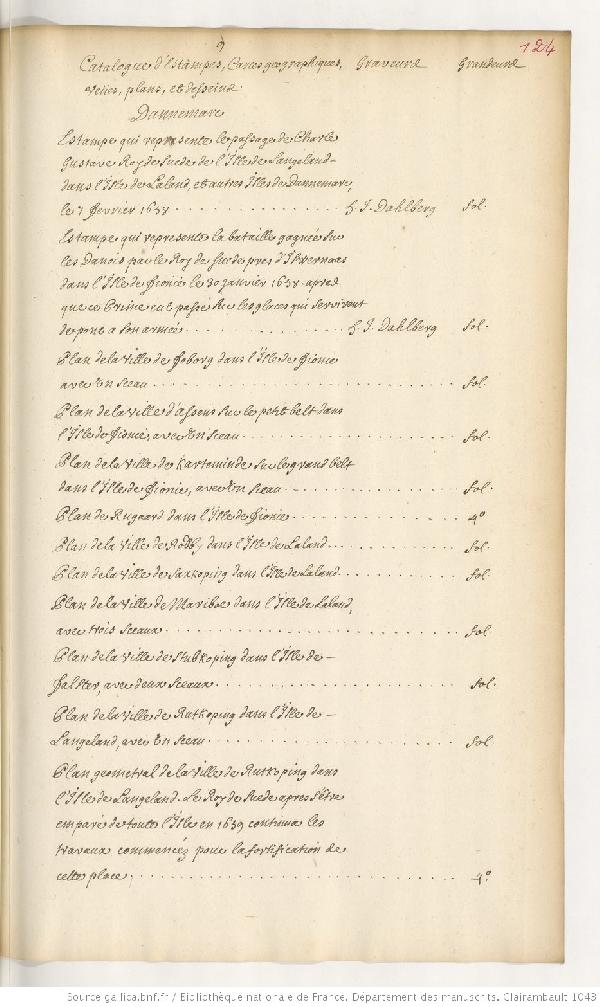 9
124
Catalogue d'Estampes, Cartes geographiques, Graveure Grandeure
veües, plans, et desseins
Dannemarc
Estampe qui represente le passage de Charle
Gustave Roy de Suede de l'Isle de Langeland
dans l'Isle de Laland, et autres Isles de Dannemarc,
le 7 fevrier 1658 E. J. Dahlberg fol.
Estampe qui represente la bataille gagnée sur
les Danois par le Roy de Suede pres d'Ibvernaes
dans l'Isle de Fionie le 30 janvier 1658. apres
que ce Prince eut passé sur les glaces qui servirent
de pont a son armée E. J. Dahlberg fol.
Plan de la Ville de Foborg dans l'Isle de Fionie
avec un sceau fol.
Plan de la Ville d'Assens sur le petit belt dans
l'Isle de Fionie, avec un sceau fol.
Plan de la Ville de Karteminde sur le grand belt
dans l'Isle de Fionie, avec un sceau fol.
Plan de Rugaard dans l'Isle de Fionie 4°
Plan de la Ville de Rodby dans l'Isle de Laland fol.
Plan de la Ville de Saxkoping dans l'Isle de Laland fol.
Plan de la Ville de Mariboe dans l'Isle de Laland,
avec trois sceaux fol.
Plan de la Ville de Stubkoping dans l'Isle de
Falster, avec deux sceaux fol.
Plan de la Ville de Rutkoping dans l'Isle de
Langeland, avec un sceau fol.
Plan geometral de la Ville de Rutkoping dans
l'Isle de Langeland. Le Roy de Suede apres s'être
emparé de toute l'Isle en 1659 continua les
travaux commencéz pour la fortification de
cette place 4°
Source gallica.bnf.fr / Bibliothèque nationale de France. Département des manuscrits. Clairambault 1043